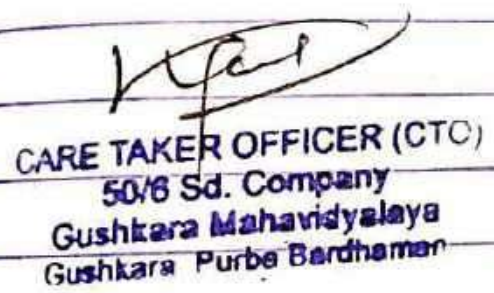 CARE TAKER OFFICER (CTO)
50/6 Sd. Company
Gushkara Mahavidyalaya
Gushkara Purba Bardhaman